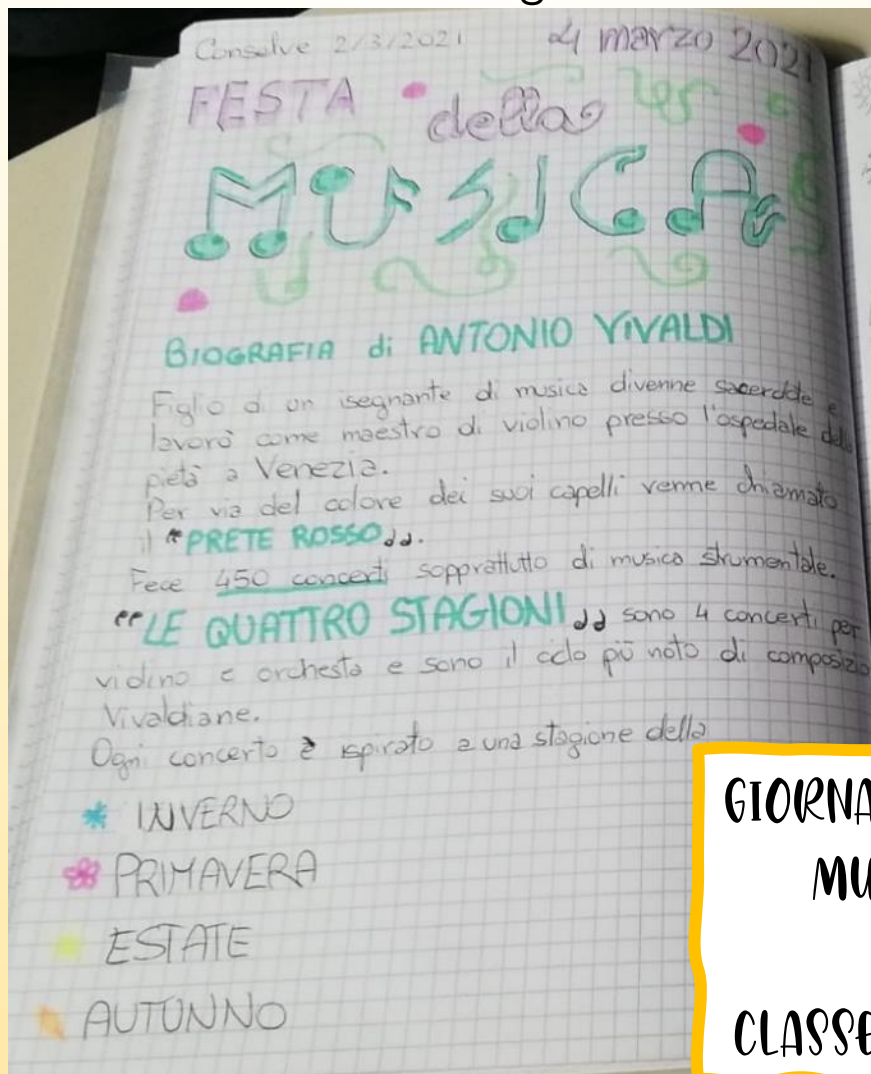 Consolve 2/3/2021 4 marzo 2021
FESTA della
MUSICA
BIOGRAFIA di ANTONIO VIVALDI
Figlio di un isegnante di musica divenne sacerdote e
lavorò come maestro di violino presso l'ospedale della
pietà a Venezia.
Per via del colore dei suoi capelli venne chiamato
il "PRETE ROSSO".
Fece 450 concerti sopprattutto di musica strumentale.
"LE QUATTRO STAGIONI" sono 4 concerti per
violino e orchesta e sono il ciclo più noto di composizio
Vivaldiane.
Ogni concerto è ispirato a una stagione della
INVERNO
PRIMAVERA
ESTATE
AUTUNNO
GIORNA
MU
CLASSE